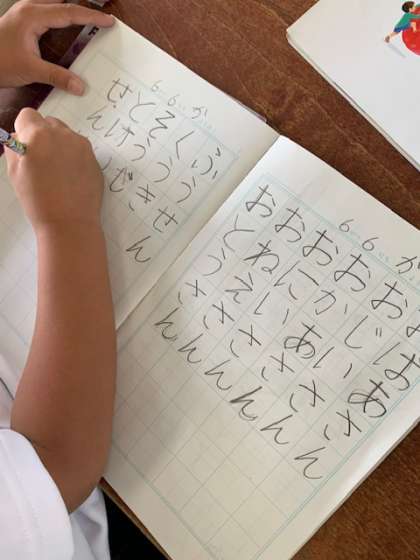 6 6 か
おばあさん
おじいさん
おかあさん
おにいさん
おねえさん
おとうさん
6 6 か
ふうせん
くうき
そう
とけ
ぜん